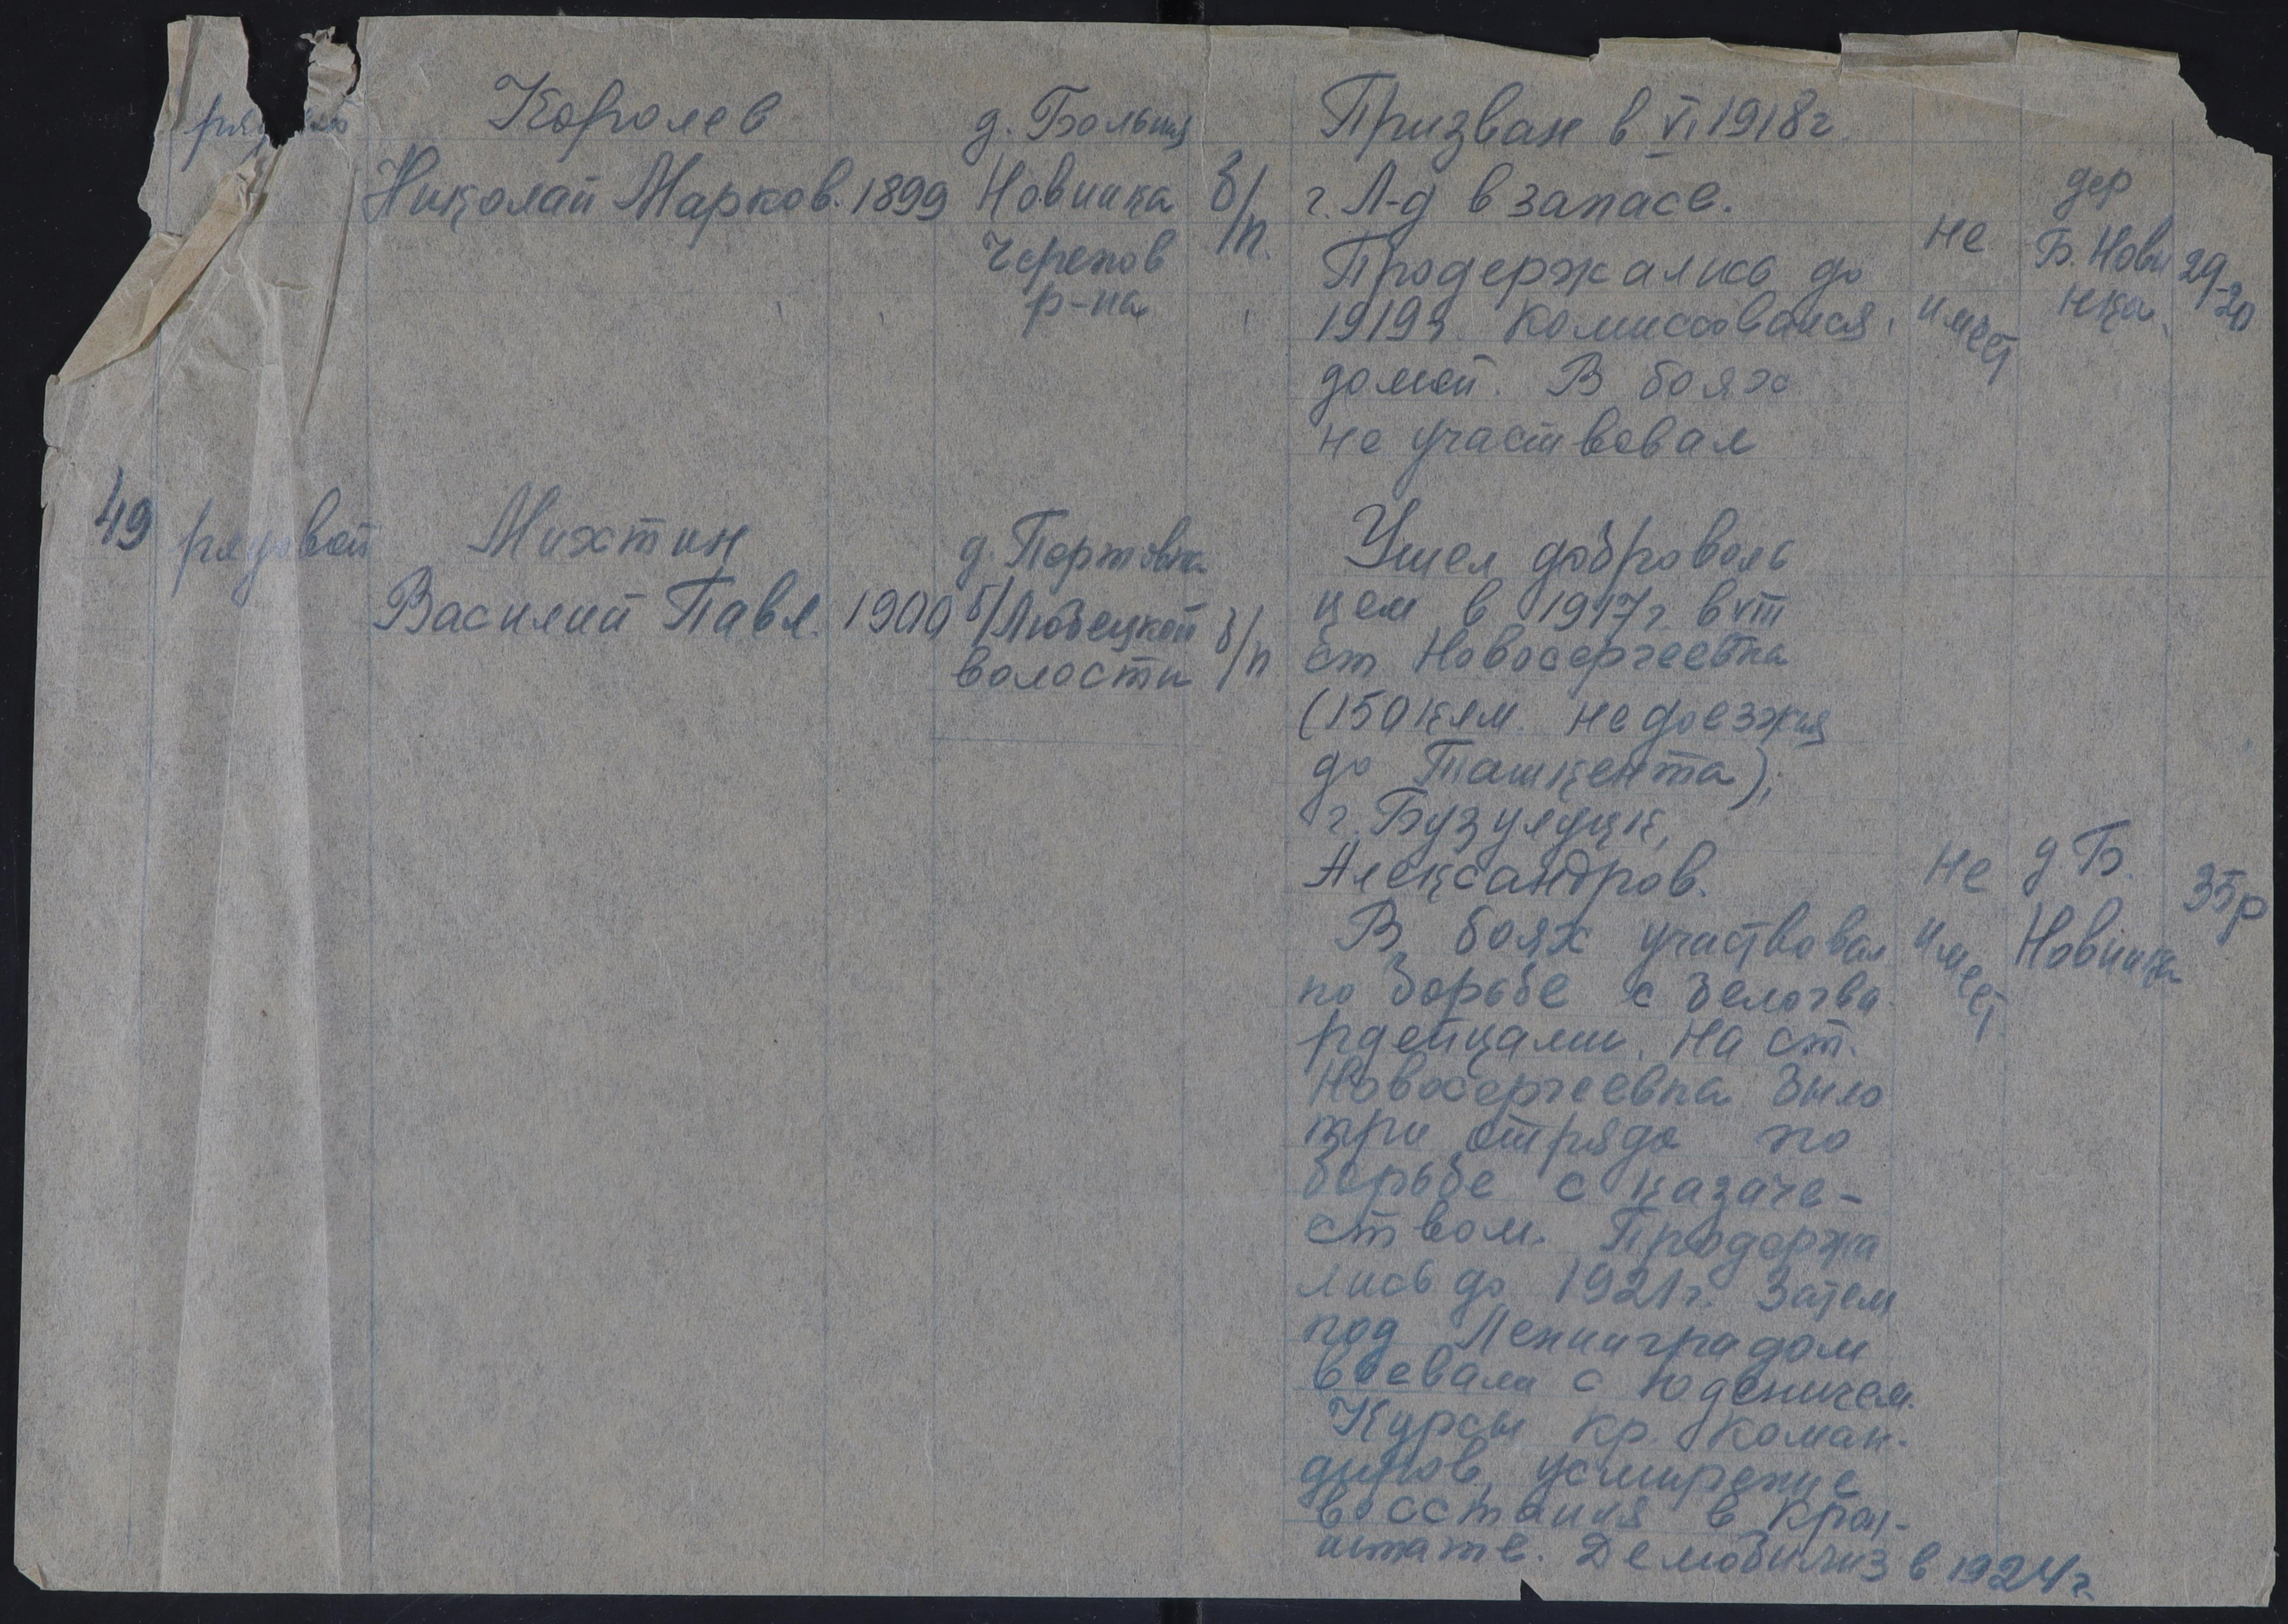 Королев
Николай Марков. 1899
д. Большая
Новинка
Черепов
р-на
б/п.
Призван в VI 1918 г.
г. Л-д в запасе.
Продержались до
1919 г. Комиссовался
домой. В боях
не участвовал
не
имеет
дер
Б. Нови
нка.
29-20
49 рядовой
Михтин
Василий Павл. 1900
д.
б/Любецкой
волости
б/п
Ушел доброволь
цем в 1917 г. в VIII
ст Новосергеевка
(150 клм. не доезжая
до Ташкента),
г. Бузулуцк,
Александров.
В боях участвовал
по борьбе с белогва
рдейцами. На ст.
Новосергеевка было
три отряда по
борьбе с казаче-
ством. Продержа
лись до 1921 г. Затем
под Ленинградом
воевали с Юденичем.
Курсы кр. коман-
диров, усмирение
восстания в Крон-
штате. Демобилиз в 1924 г
не
имеет
д Б.
Новинка
35р